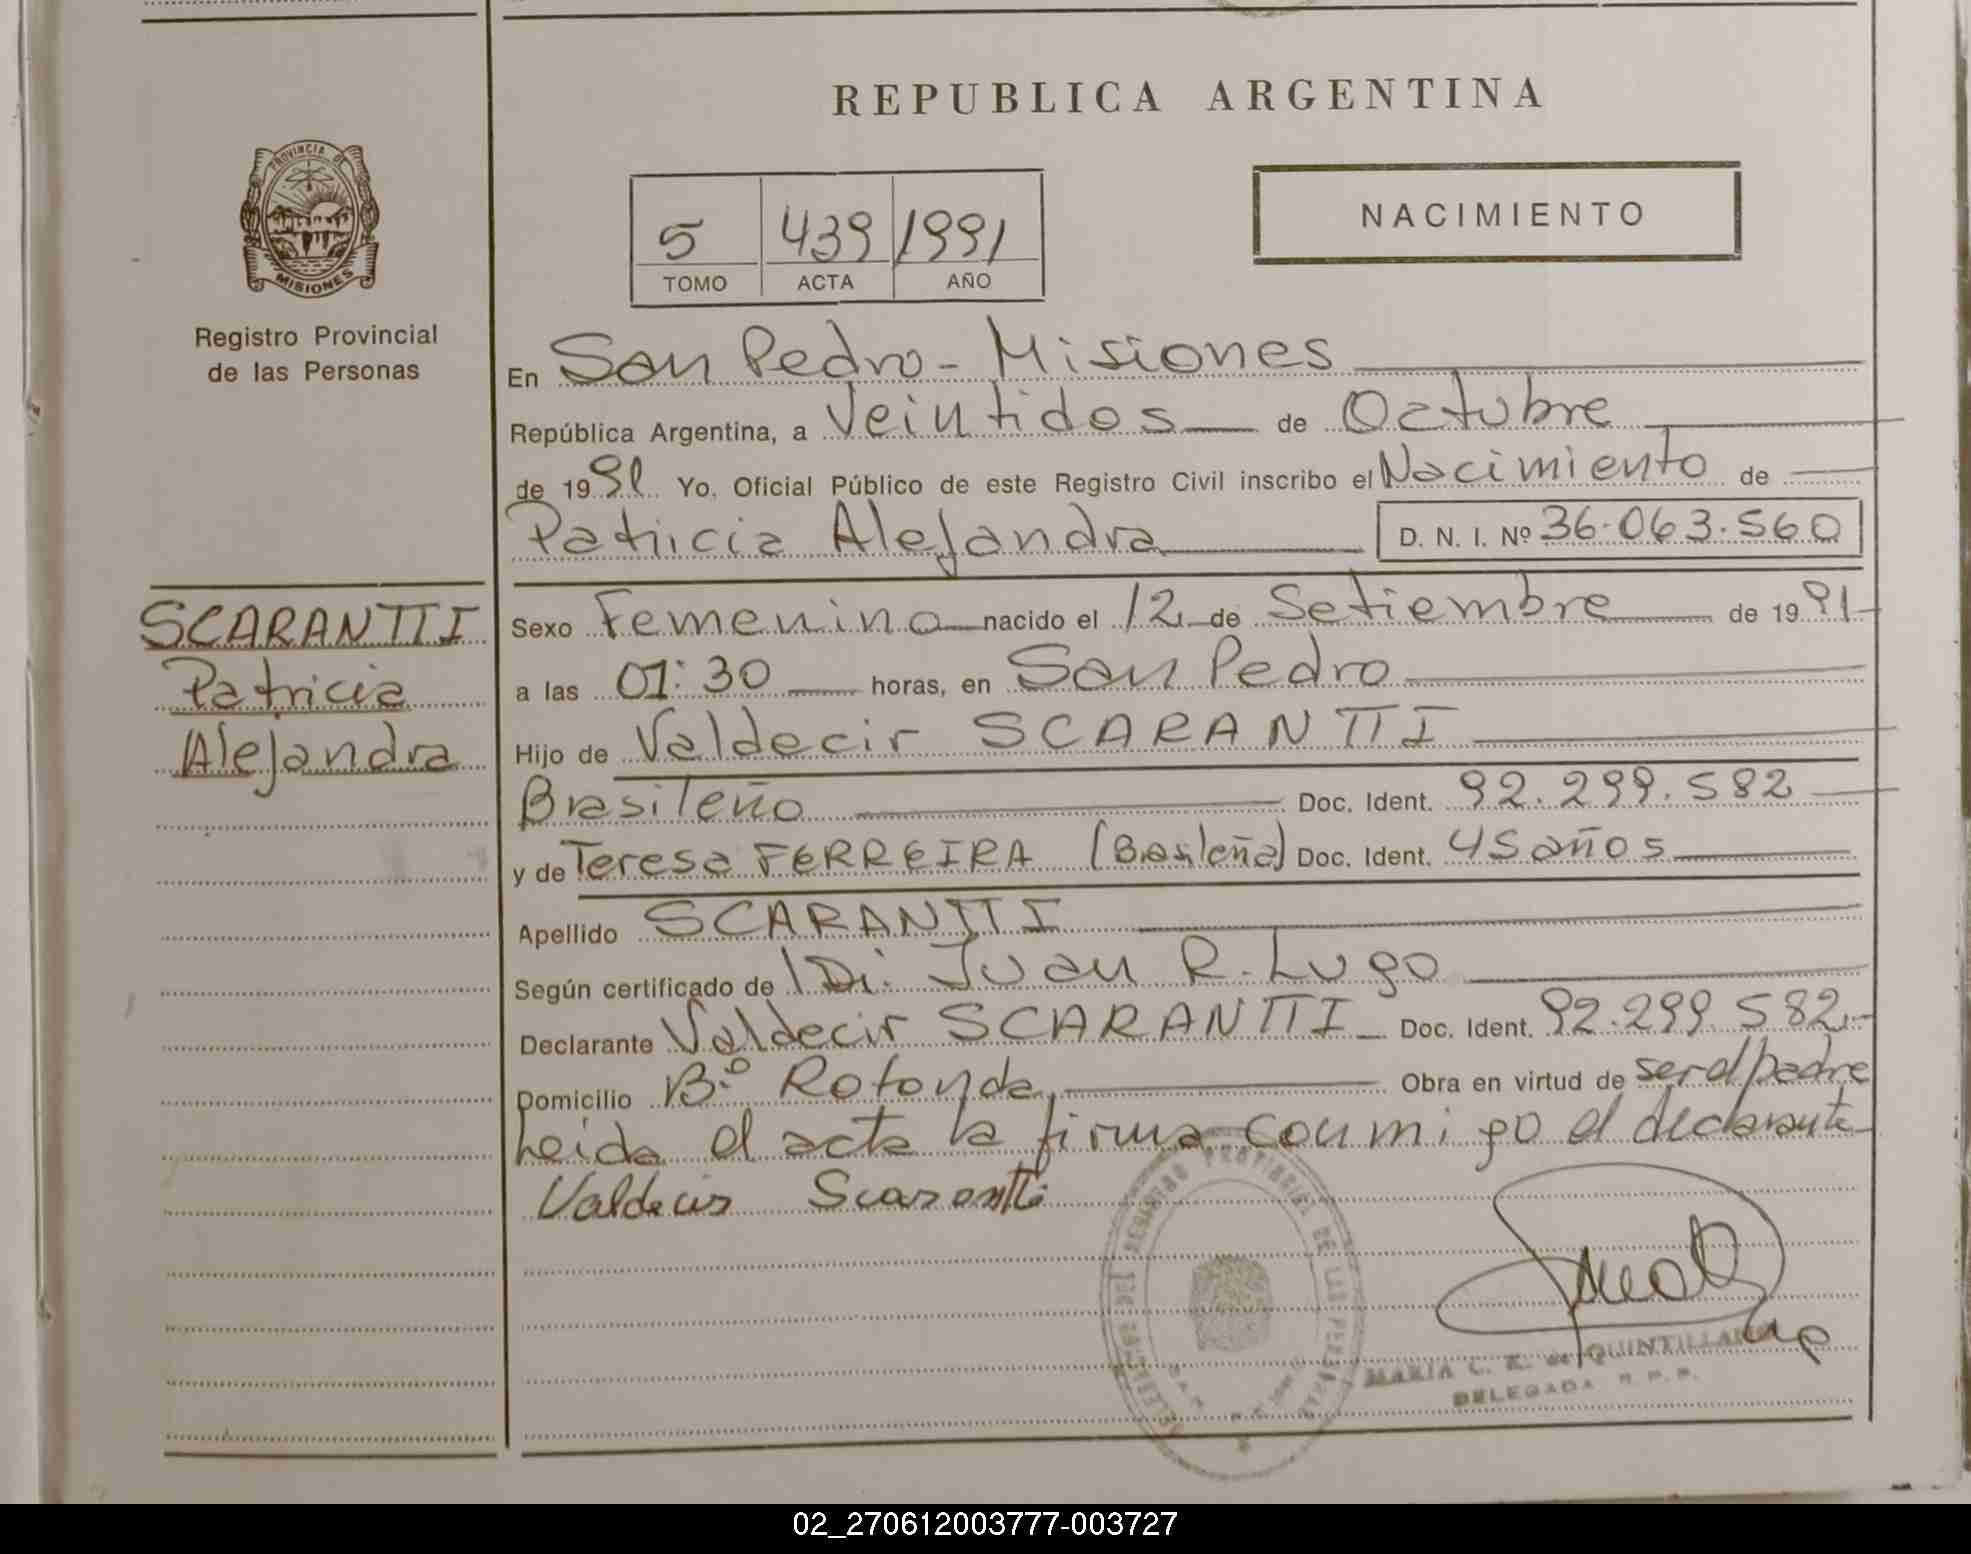 REPUBLICA ARGENTINA
PROVINCIA DE
MISIONES
Registro Provincial
de las Personas
5 439 1991
TOMO ACTA AÑO
NACIMIENTO
En San Pedro - Misiones
República Argentina, a Veintidos de Octubre
de 1991 Yo, Oficial Público de este Registro Civil inscribo el Nacimiento de
Patricia Alejandra D. N. I. Nº 36.063.560
SCARANTTI
Patricia
Alejandra
Sexo Femenino nacido el 12 de Setiembre de 1991
a las 01:30 horas, en San Pedro
Hijo de Valdecir SCARANTTI
Brasileño Doc. Ident. 92.299.582
y de Teresa FERREIRA (Brasileña) Doc. Ident. 45 años
Apellido SCARANTTI
Según certificado de Juan R. Lugo
Declarante Valdecir SCARANTTI Doc. Ident. 92.299.582
Domicilio Bº Rotonda Obra en virtud de ser el padre
Leida el acta la firma conmigo el declarante
Valdecir Scarantti
REGISTRO PROVINCIAL DE LAS PERSONAS
MARIA C. de QUINTILLAN
DELEGADA R. P. P.
02_270612003777-003727